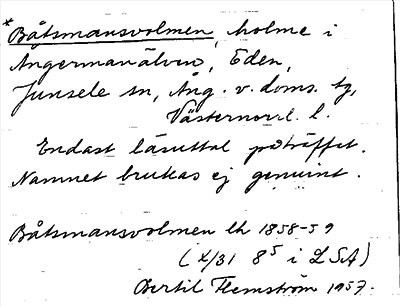 *Båtsmansvolmen, holme i
Ångermanälven, Eden,
Junsele sn, Ång. v. doms. tg,
Västernorrl. l.
Endast läsuttal påträffat.
Namnet brukas ej genuint.
Båtsmansvolmen lk 1858-59
(X/31 8⁵ i LSA)
Bertil Flemström 1957.